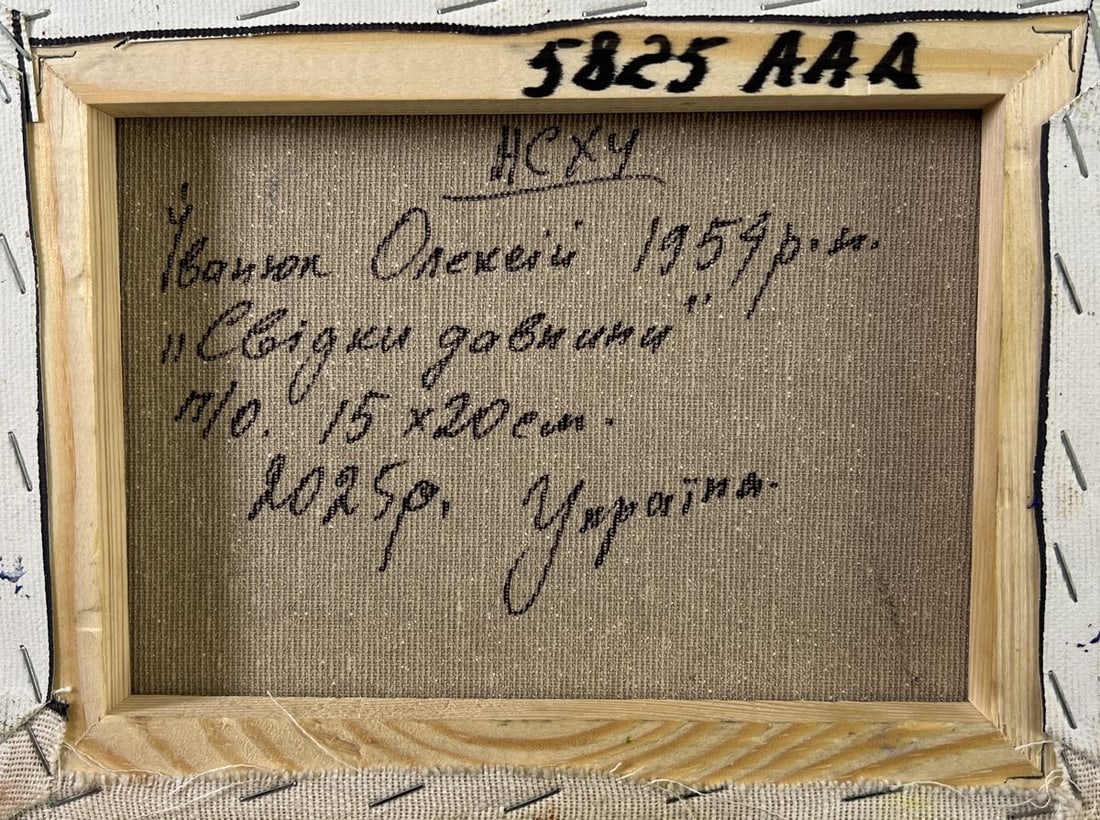 5825 AAA
НСХУ
Іванюк Олексій 1954р.н.
„Свідки давнини"
п/о. 15 х 20 см.
2025р. Україна.